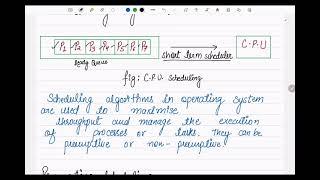 P1 P2 P3 P4 P5 P6 P7
short term scheduler
C.P.U
Ready Queue
fig: C.P.U. Scheduling
Scheduling algorithms in operating system
are used to maximise
throughput and manage the execution
of processes or tasks. They can be
preemptive or non-preemptive.